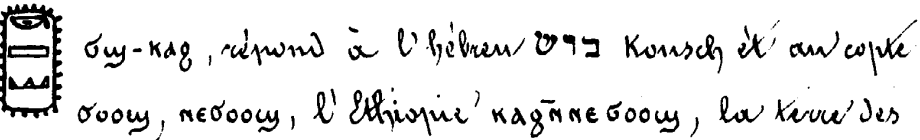 ϭⲱϣ-ⲕⲁϩ, répond à l'hébreu כוש Kousch et au copte
ϭⲟⲟϣ, ⲛⲉϭⲟⲟϣ, l'Éthiopie ⲕⲁϩⲛ̄ⲛⲉϭⲟⲟϣ, la terre des